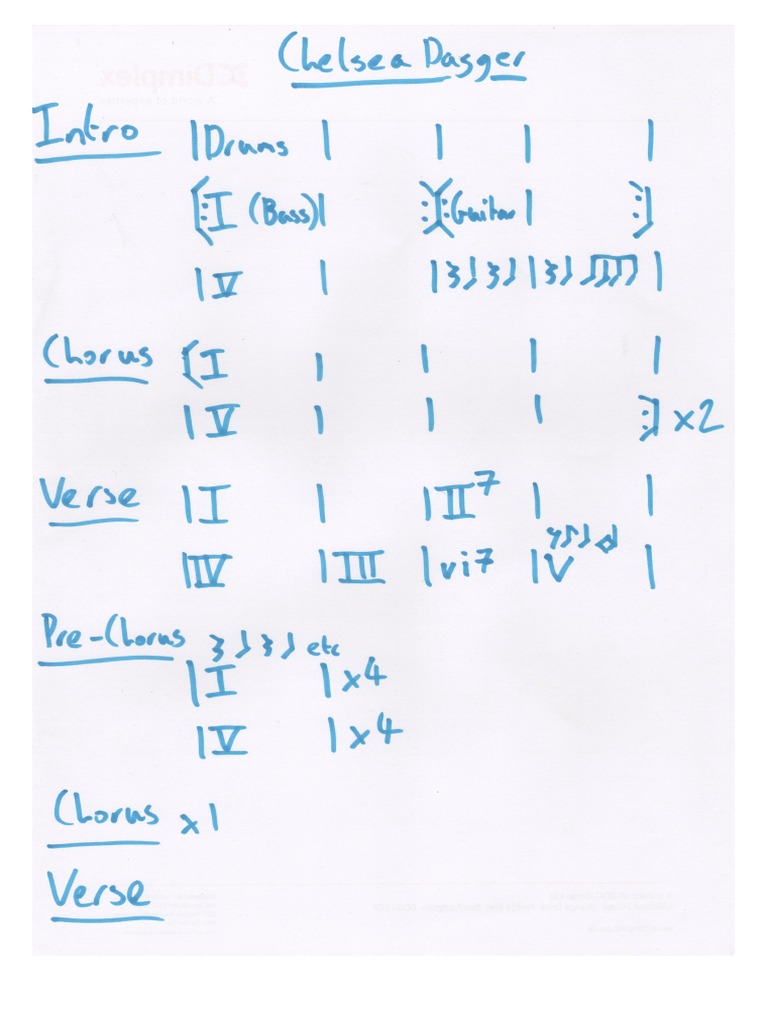 Chelsea Dagger
Intro |Drums | | | |
[: I (Bass)| :][: (Guitar | :]
|V | | | |
Chorus [I | | | |
|V | | | :] x2
Verse |I | |II7 | |
|IV |III |vi7 |V |
Pre-Chorus etc
|I | x4
|V | x4
Chorus x1
Verse